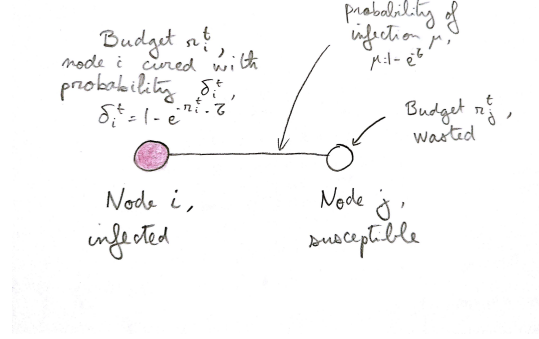 Budget r_i^t,
node i cured with
probability δ_i^t,
δ_i^t = 1 - e^{-r_i^t · τ}
probability of
infection μ,
μ = 1 - e^{τ}
Budget r_j^t,
wasted
Node i,
infected
Node j,
susceptible